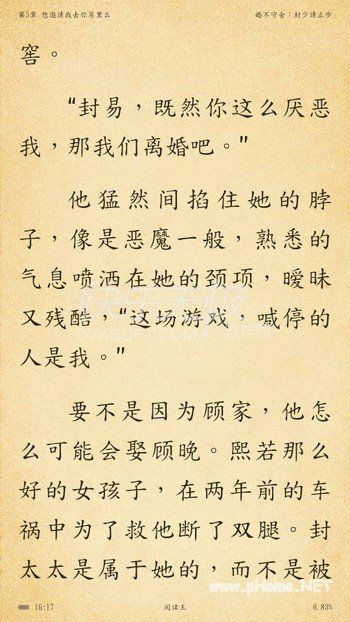 第5章 想邀请我去你房里么 婚不守舍：封少请止步
窖。
“封易，既然你这么厌恶
我，那我们离婚吧。”
他猛然间掐住她的脖
子，像是恶魔一般，熟悉的
气息喷洒在她的颈项，暧昧
又残酷，“这场游戏，喊停的
人是我。”
要不是因为顾家，他怎
么可能会娶顾晚。熙若那么
好的女孩子，在两年前的车
祸中为了救他断了双腿。封
太太是属于她的，而不是被
www.pHome.NET
16:17 阅读王 0.83%